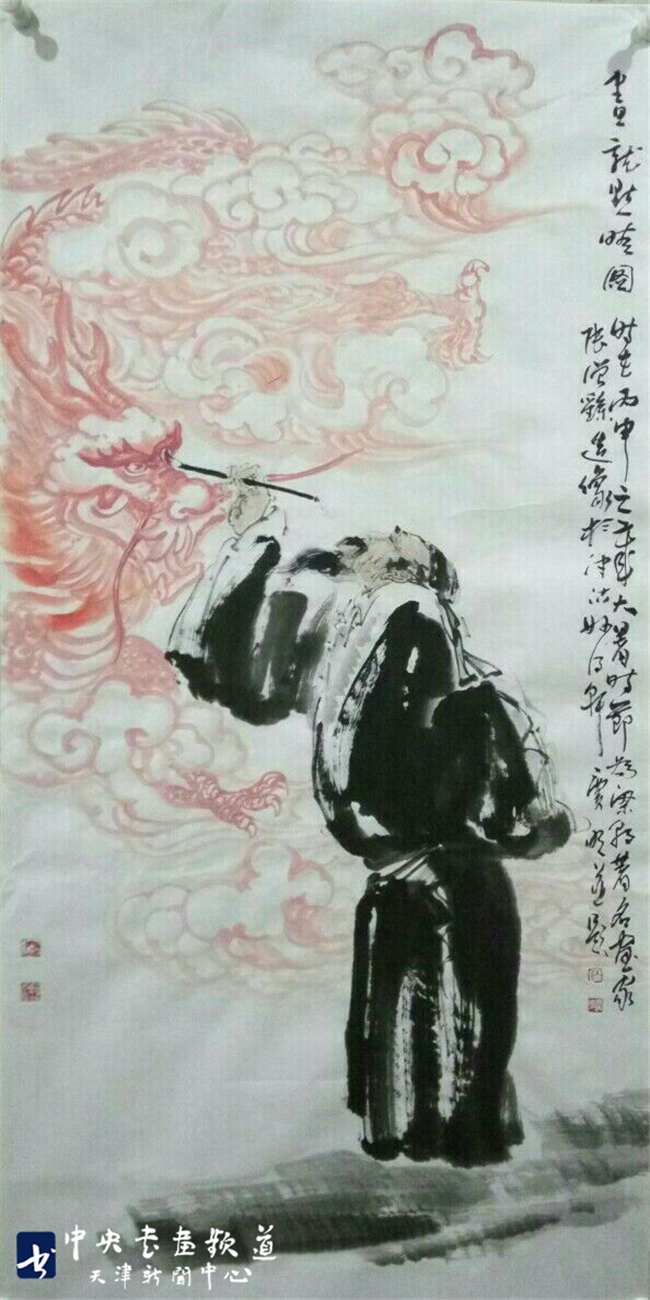 画龙点睛图
时在丙申之年岁大暑时节为梁朝著名画家
张僧繇造像於津沽妙得轩 贾明道题
中央书画频道
天津新闻中心